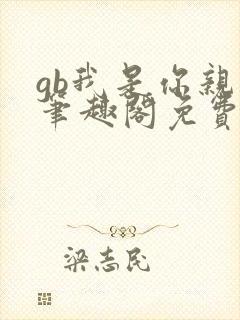 gb我是你親
筆趣閣免費
梁志民